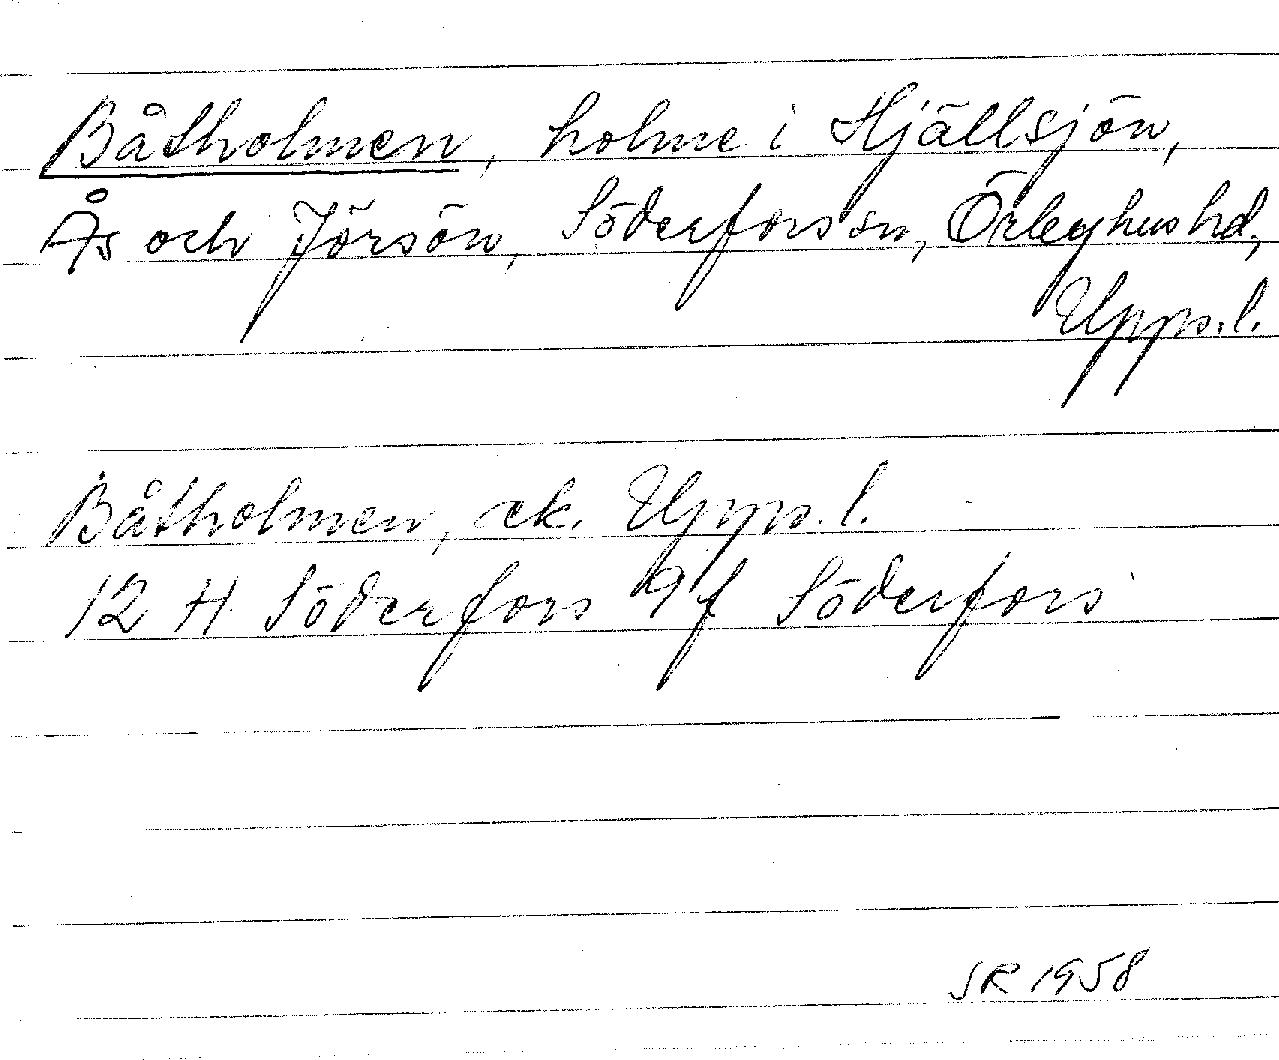 Båtholmen, holme i Hjällsjön,
Ås och Jörsön, Söderfors sn, Örbyhus hd,
Upps. l.
Båtholmen, ek. Upps. l.
12 H Söderfors 9 f Söderfors
SR 1958